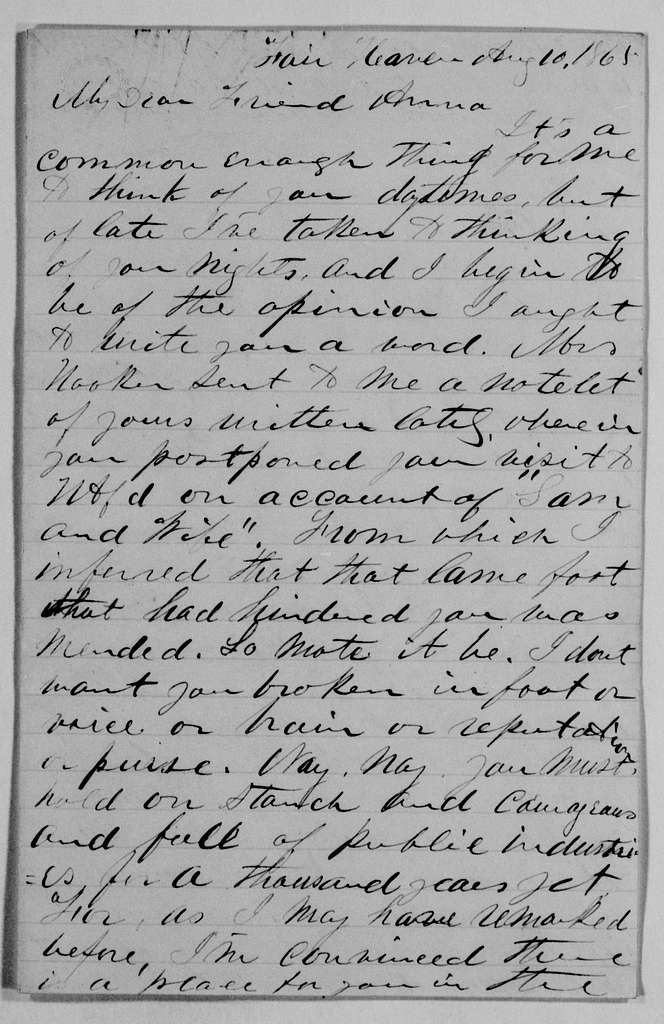 Fair Haven Aug 10, 1865
My Dear Friend Anna
It's a
common enough thing for me
to think of you daytimes, but
of late I've taken to thinking
of you nights, and I begin to
be of the opinion I ought
to write you a word. Mrs
Hooker sent to me a notelet
of yours written lately, wherein
you postponed your visit to
Htfd on account of "Sam
and Wife". From which I
inferred that that lame foot
that had hindered you was
mended. So mote it be. I dont
want you broken in foot or
voice or brain or reputation
or purse. Nay, Nay. You must
hold on staunch and courageous
and full of public industri
=es for a thousand years yet
For, as I may have remarked
before, I'm convinced there
is a place for you in the